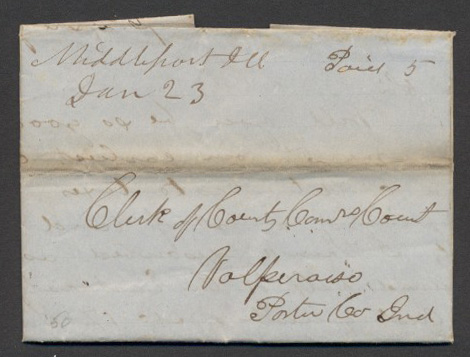 Middleport Ill
Paid 5
Jan 23
Clerk of County Comrs Court
Valperaiso
Porter Co Ind
50